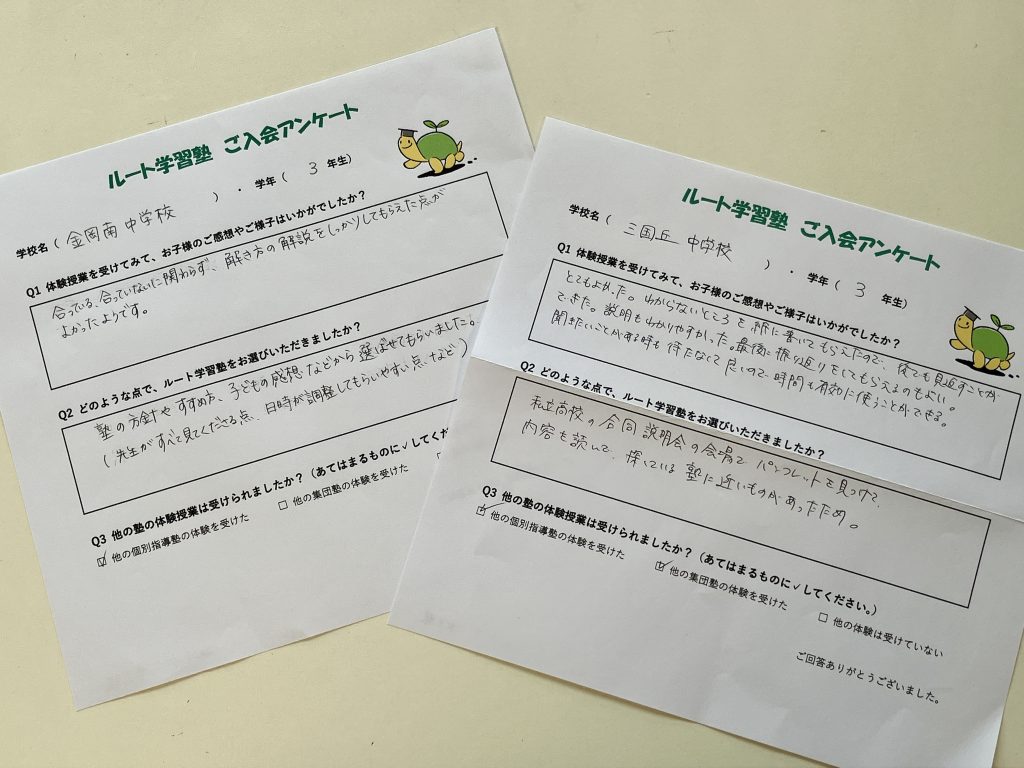 ルート学習塾 ご入会アンケート
学校名（ 金岡南 中学校 ）・ 学年（ 3 年生）
Q1 体験授業を受けてみて、お子様のご感想やご様子はいかがでしたか？
合っている、合っていないに関わらず、解き方の解説をしっかりしてもらえた点が
よかったようです。
Q2 どのような点で、ルート学習塾をお選びいただきましたか？
塾の方針やすすめ方、子どもの感想などから選ばせてもらいました。
(先生がすべて見てくださる点、日時が調整してもらいやすい点、など)
Q3 他の塾の体験授業は受けられましたか？（あてはまるものに✓してくださ
☑ 他の個別指導塾の体験を受けた
☐ 他の集団塾の体験を受けた
ルート学習塾 ご入会アンケート
学校名（ 三国丘 中学校 ）・ 学年（ 3 年生）
Q1 体験授業を受けてみて、お子様のご感想やご様子はいかがでしたか？
とてもよかった。わからないところを紙に書いてもらえたので、後でも見返すことが
できた。説明もわかりやすかった。最後に振り返りをしてもらえるのもよい。
聞きたいことがある時も待たなくて良いので時間も有効に使うことができる。
Q2 どのような点で、ルート学習塾をお選びいただきましたか？
私立高校の合同説明会の会場でパンフレットを見つけて
内容を読んで、探している塾に近いものがあったため。
Q3 他の塾の体験授業は受けられましたか？（あてはまるものに✓してください。）
☑ 他の個別指導塾の体験を受けた
☑ 他の集団塾の体験を受けた
☐ 他の体験は受けていない
ご回答ありがとうございました。